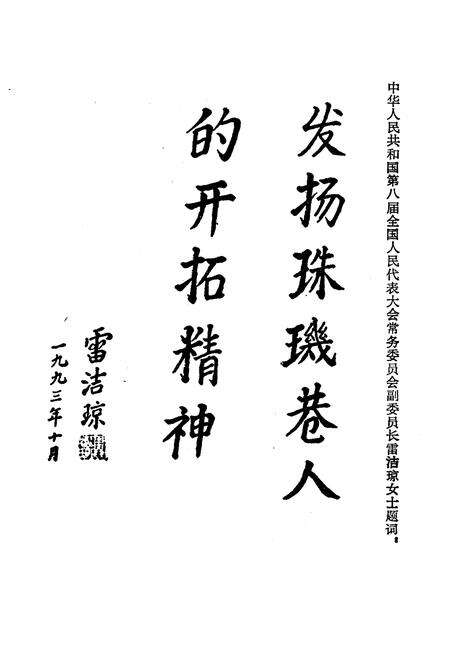 中华人民共和国第八届全国人民代表大会常务委员会副委员长雷洁琼女士题词：
发扬珠玑巷人
的开拓精神
雷洁琼
一九九三年十月